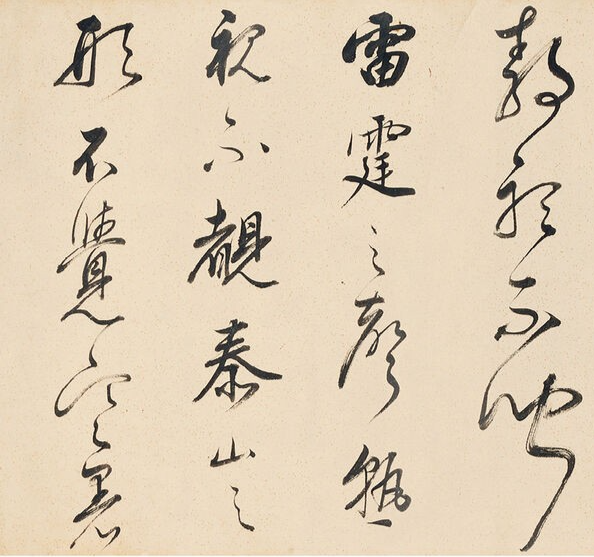 靜聽不聞
雷霆之聲熟
視不覩泰山之
形不覺寒暑